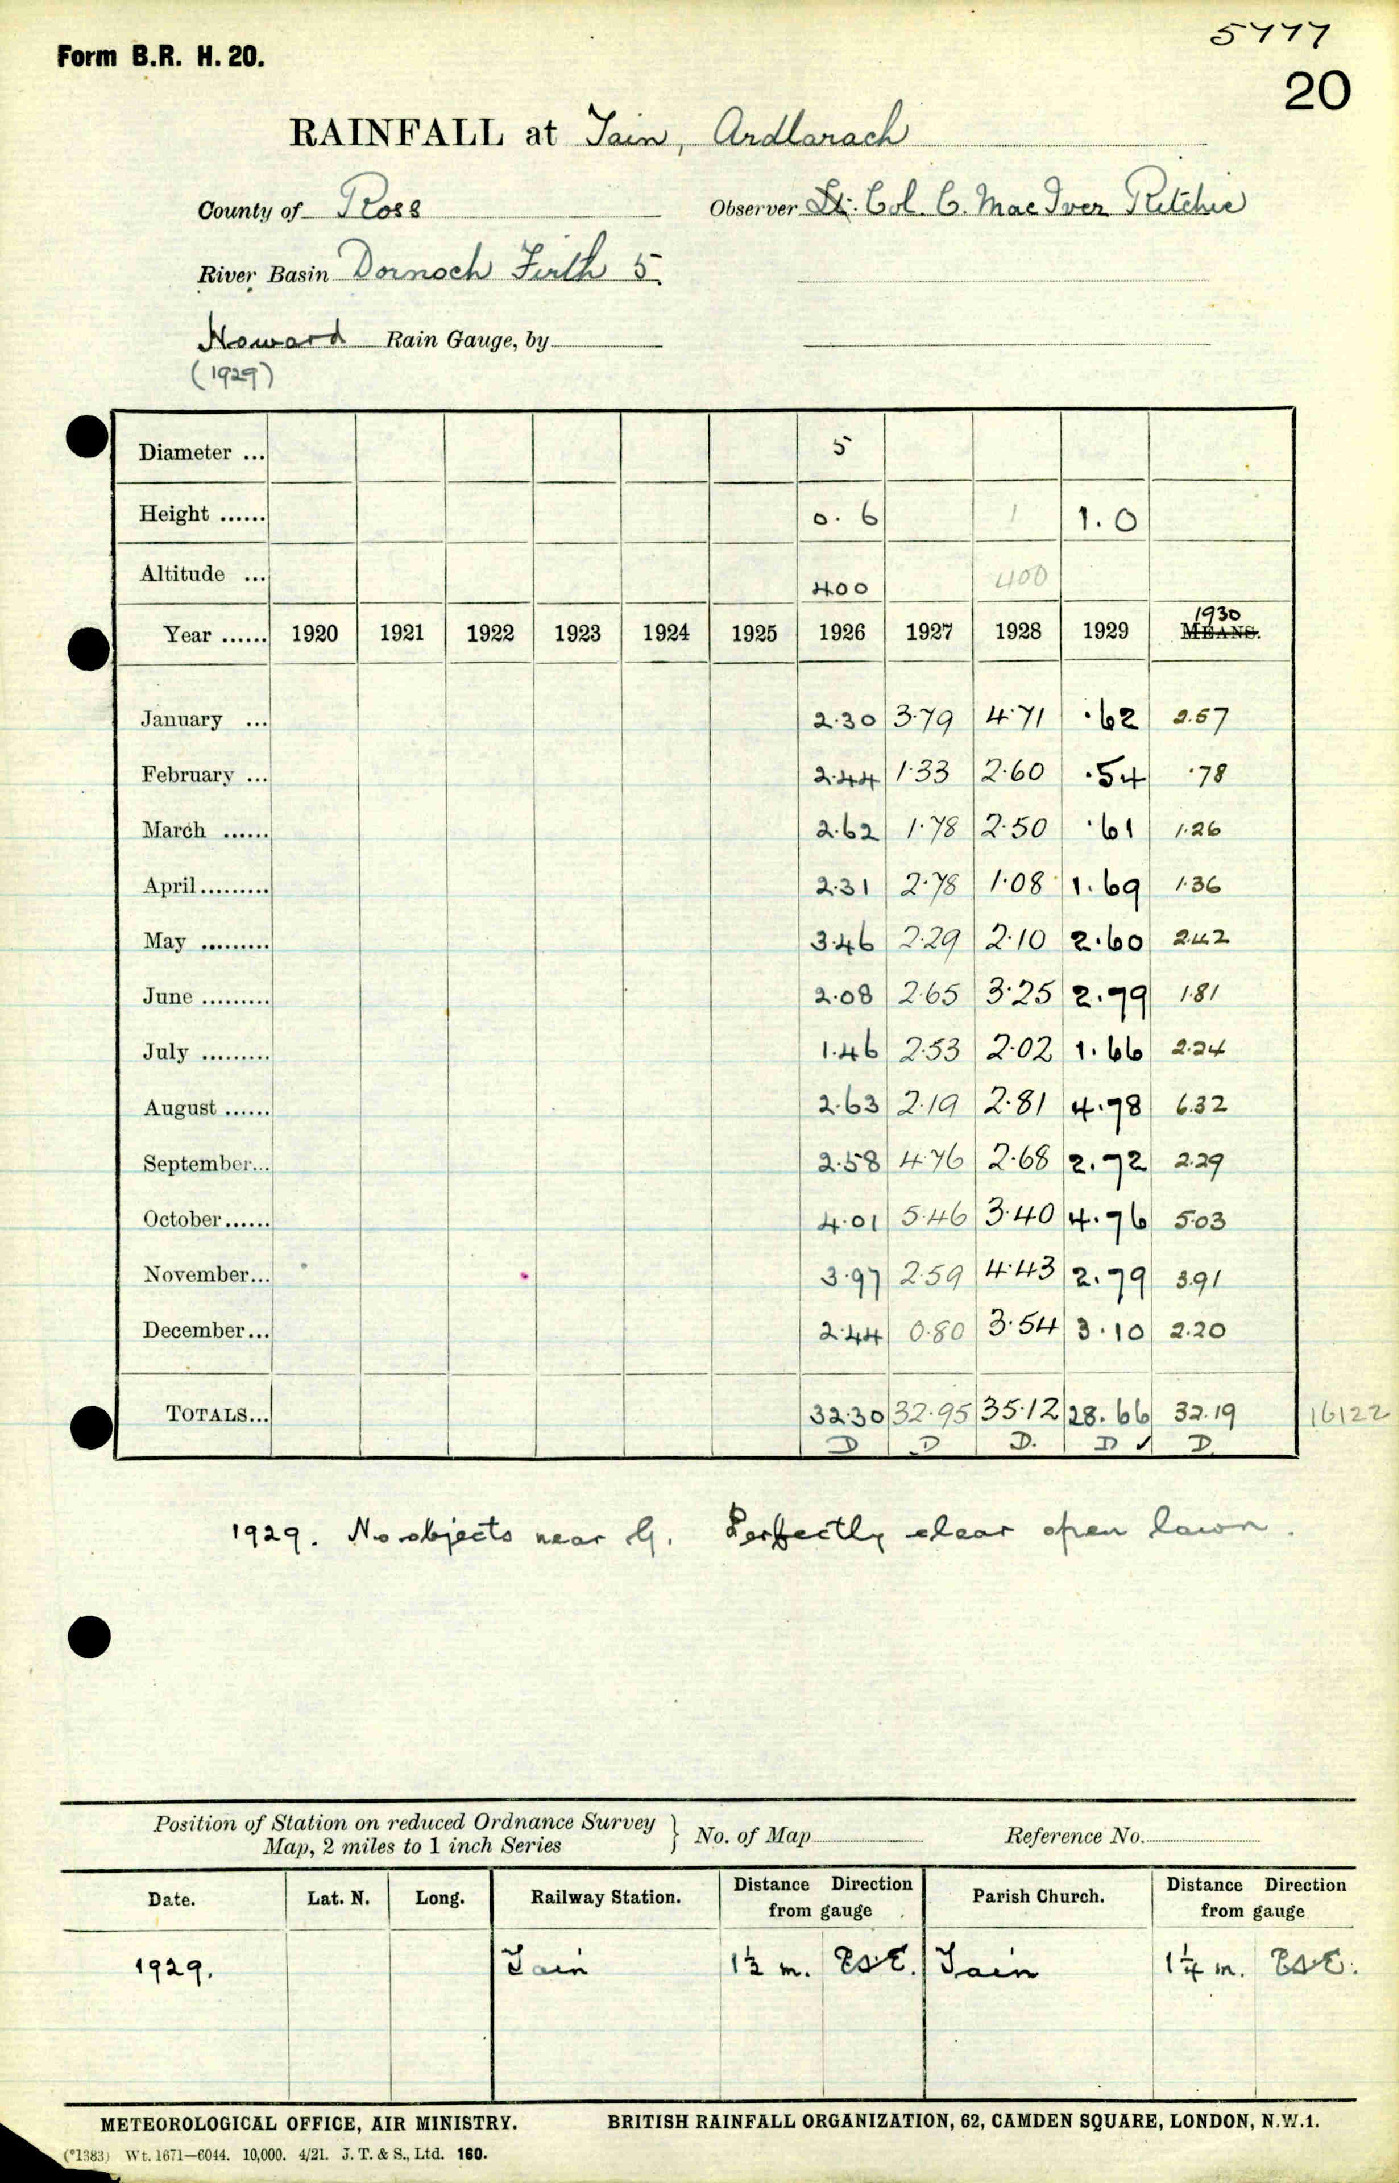 5777
Form B.R. H. 20.
20
RAINFALL at Tain, Ardlarach
County of Ross Observer Lt. Col. C. MacIver Ritchie
River Basin Dornoch Firth 5
Howard Rain Gauge, by
(1929)
Diameter ... 5
Height ...... 0.6 1 1.0
Altitude ... 400 400
1930
Year ...... 1920 1921 1922 1923 1924 1925 1926 1927 1928 1929 MEANS.
January ... 2.30 3.79 4.71 .62 2.57
February ... 2.44 1.33 2.60 .54 .78
March ...... 2.62 1.78 2.50 .61 1.26
April ......... 2.31 2.78 1.08 1.69 1.36
May ......... 3.46 2.29 2.10 2.60 2.42
June ......... 2.08 2.65 3.25 2.79 1.81
July ......... 1.46 2.53 2.02 1.66 2.24
August ...... 2.63 2.19 2.81 4.78 6.32
September... 2.58 4.76 2.68 2.72 2.29
October...... 4.01 5.46 3.40 4.76 5.03
November... 3.97 2.59 4.43 2.79 3.91
December... 2.44 0.80 3.54 3.10 2.20
TOTALS... 32.30 32.95 35.12 28.66 32.19 16122
D D D. D ✓ D
1929. No objects near G. Perfectly clear open lawn.
Position of Station on reduced Ordnance Survey
Map, 2 miles to 1 inch Series } No. of Map Reference No.
Date. Lat. N. Long. Railway Station. Distance Direction from gauge Parish Church. Distance Direction from gauge
1929. Tain 1½ m. ESE. Tain 1¼ m. ESE.
METEOROLOGICAL OFFICE, AIR MINISTRY. BRITISH RAINFALL ORGANIZATION, 62, CAMDEN SQUARE, LONDON, N.W.1.
(*1383) Wt. 1671—6044. 10,000. 4/21. J. T. & S., Ltd. 160.